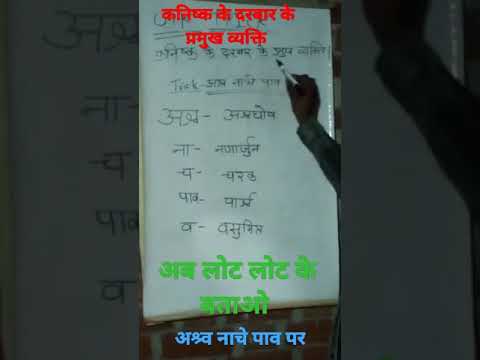 कनिष्क के दरबार के
प्रमुख व्यक्ति
कनिष्क के दरबार के प्रमुख व्यक्ति
Trick- अश्व नाचे पाव
अश्व - अश्वघोष
ना - नागार्जुन
च - चरक
पाव - पार्श्व
व - वसुमित्र
अब लोट लोट के
बताओ
अश्र्व नाचे पाव पर